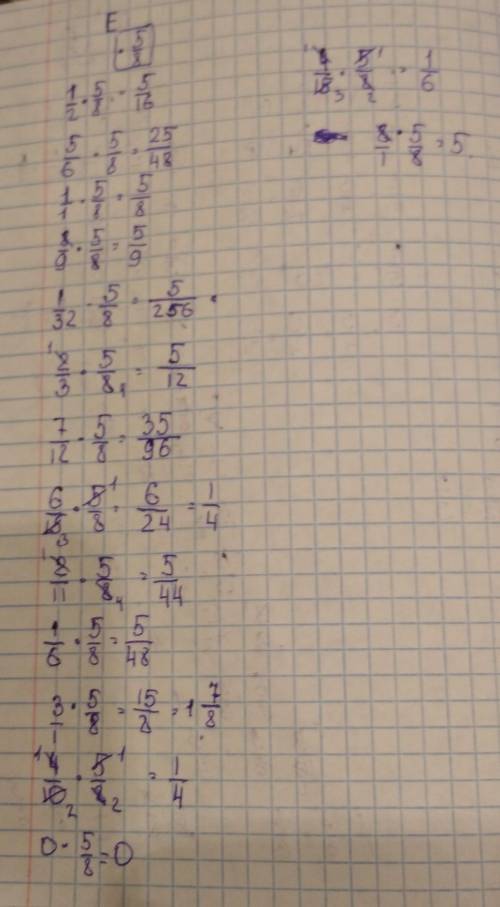 E
· 5/8
1/2 · 5/8 = 5/16
5/6 · 5/8 = 25/48
1/1 · 5/8 = 5/8
8/9 · 5/8 = 5/9
1/32 · 5/8 = 5/256
2/3 · 5/8 4 = 5/12
7/12 · 5/8 = 35/96
6/15 3 · 5/8 1 = 6/24 = 1/4
/11 · 5/8 4 = 5/44
1/6 · 5/8 = 5/48
3/1 · 5/8 = 15/8 = 1 7/8
1 4/10 2 · 5/8 1 2 = 1/4
0 · 5/8 = 0
1 4/15 3 · 5/8 1 2 = 1/6
8/1 · 5/8 = 5